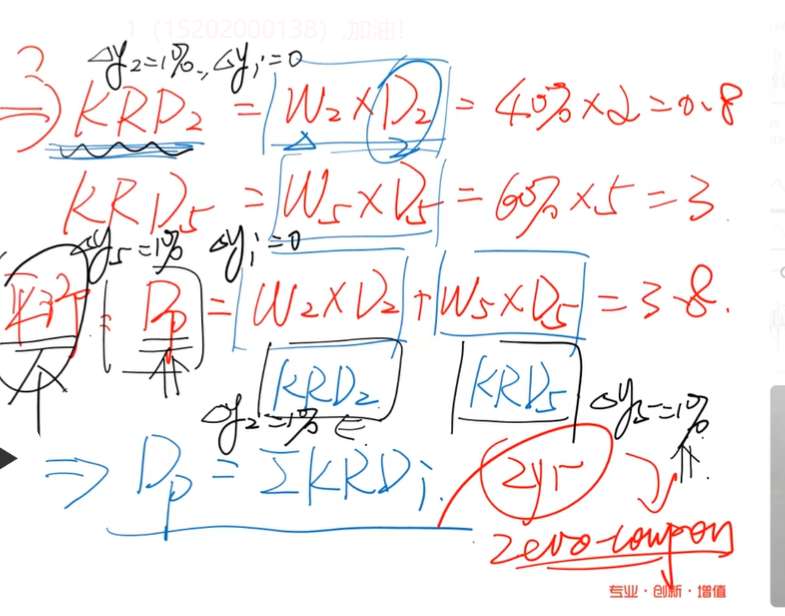 1 (15202000138) 加油!
Δy₂=1%, Δyᵢ=0
⇒ KRD₂ = W₂×D₂ = 40%×2=0.8
KRD₅ = W₅×D₅ = 60%×5=3
Δy₅=1% Δyᵢ=0
平行: Dp = W₂×D₂+W₅×D₅=3.8.
KRD₂ KRD₅
Δy₂=1% Δy₅=1%
⇒ Dp = ΣKRDᵢ 2yr
zero-coupon
专业·创新·增值